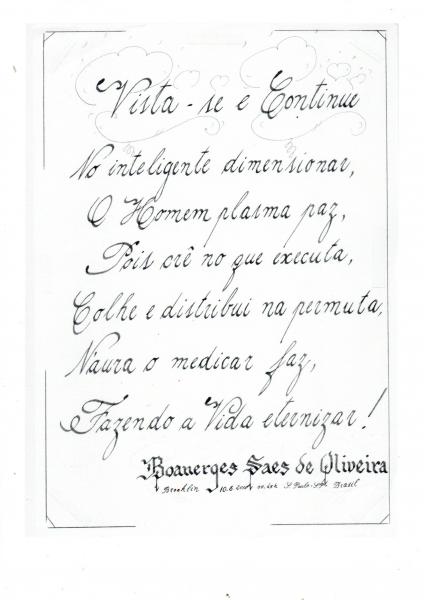 Vista-se e Continue
No inteligente dimensionar,
O Homem plasma paz,
Pois crê no que executa,
Colhe e distribui na permuta,
Naura o medicar faz,
Fazendo a Vida eternizar!
Boanerges Saes de Oliveira
Brooklin 10.6.2000 S. Paulo-SP. Brasil